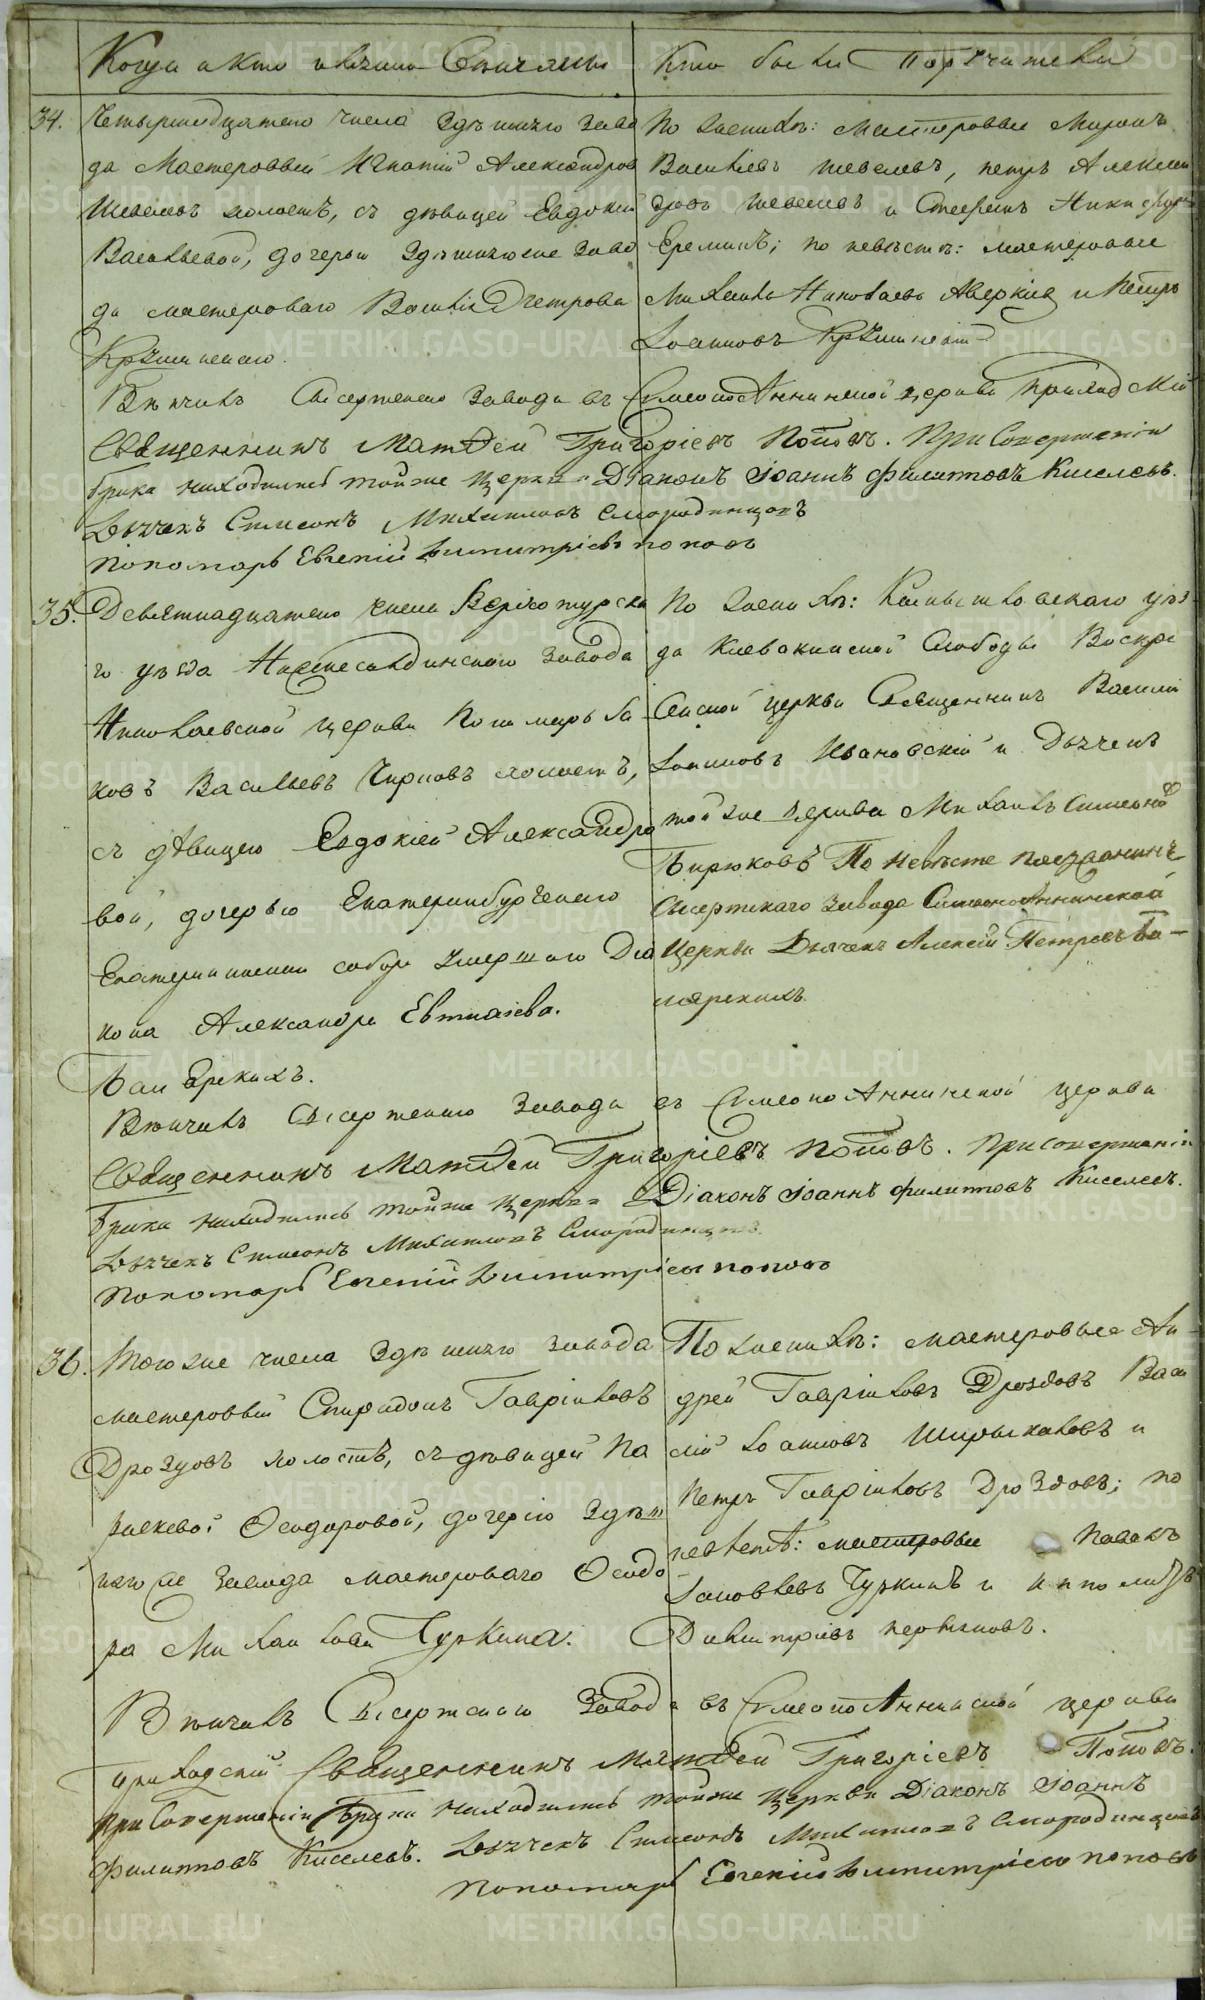 Когда и кто именно Венчаны
Кто были Поручители
34.
Четырнадцатого числа Здѣшняго Заво
да Мастеровый Игнатій Александров
Шевелевъ холостъ, съ дѣвицей Евдокіей
Васильевой, дочерью Здѣшняго же Заво
да мастероваго Василія Петрова
По женихѣ: мастеровые Миронъ
Васильевъ Шевелевъ, петръ Алексан
дровъ Шевелевъ и Никифоро
Ереминъ; по невѣстѣ: мастеровые
Михаилъ Николаевъ Аверкіев и Петръ
Іоанновъ
Вѣнчалъ Сысертскаго Завода въ Симеоно Аннинской церкви Приходскій
Священникъ Матѳей Григоріевъ Поповъ. При Совершеніи
брака находились тойже церкви Діаконъ Іоаннъ Филипповъ Киселевъ.
Дьячекъ Симеонъ Михаиловъ Смородинцовъ
Пономарь Евгеній Димитріевъ поповъ
35.
Девятнадцатого числа Верхотурска
го уѣзда Нижнесалдинского завода
Николаевской церкви Пономарь Іа
ковъ Васильевъ Чирковъ холостъ,
съ дѣвицею Евдокіей Александро
вой, дочерью Екатеринбургского
Екатерининского собора умершаго Діа
кона Александра Евтихіева.
По женихѣ: Камышловскаго уѣз
да Клевакинской Слободы Воскре
сенской церкви Священникъ Василій
Іоанновъ Ивановскій и Дьячекъ
той же церкви Михаилъ Симеоно
Бирюковъ По Невѣсте
Сысертскаго Завода Симеоно Аннинской
Церкви Дьячекъ Алексѣй Петровъ
Вѣнчалъ Сысертского Завода въ Симеоно Аннинской церкви
Священникъ Матѳей Григоріевъ Поповъ. При совершеніи
брака находились тойже церкви Діаконъ Іоаннъ Филипповъ Киселевъ.
Дьячекъ Симеонъ Михаиловъ Смородинцовъ
Пономарь Евгеній Димитріевъ поповъ
36.
Тогоже числа Здѣшняго завода
мастеровый Спиридонъ Гавріиловъ
Дроздовъ холостъ, съ дѣвицей Па
раскевой Ѳеодоровой, дочерію Здѣш
няго же Завода мастероваго Ѳеодо
ра Михаилова Чуркина.
По женихѣ: мастеровые Ан
дрей Гавріиловъ Дроздовъ Васи
лій Іоанновъ Ширыкаловъ и
Петръ Гавріиловъ Дроздовъ; по
невѣстѣ: мастеровые Павелъ
Іаковлевъ Чуркинъ и Ипполитъ
Димитріевъ
Вѣнчалъ Сысертского Завода въ Симеоно Аннинской церкви
приходскій Священникъ Матѳей Григоріевъ Поповъ.
при Совершеніи Брака находились тойже церкви Діаконъ Іоаннъ
Филипповъ Киселевъ. Дьячекъ Симеонъ Михаиловъ Смородинцовъ
Пономарь Евгеній Димитріевъ поповъ